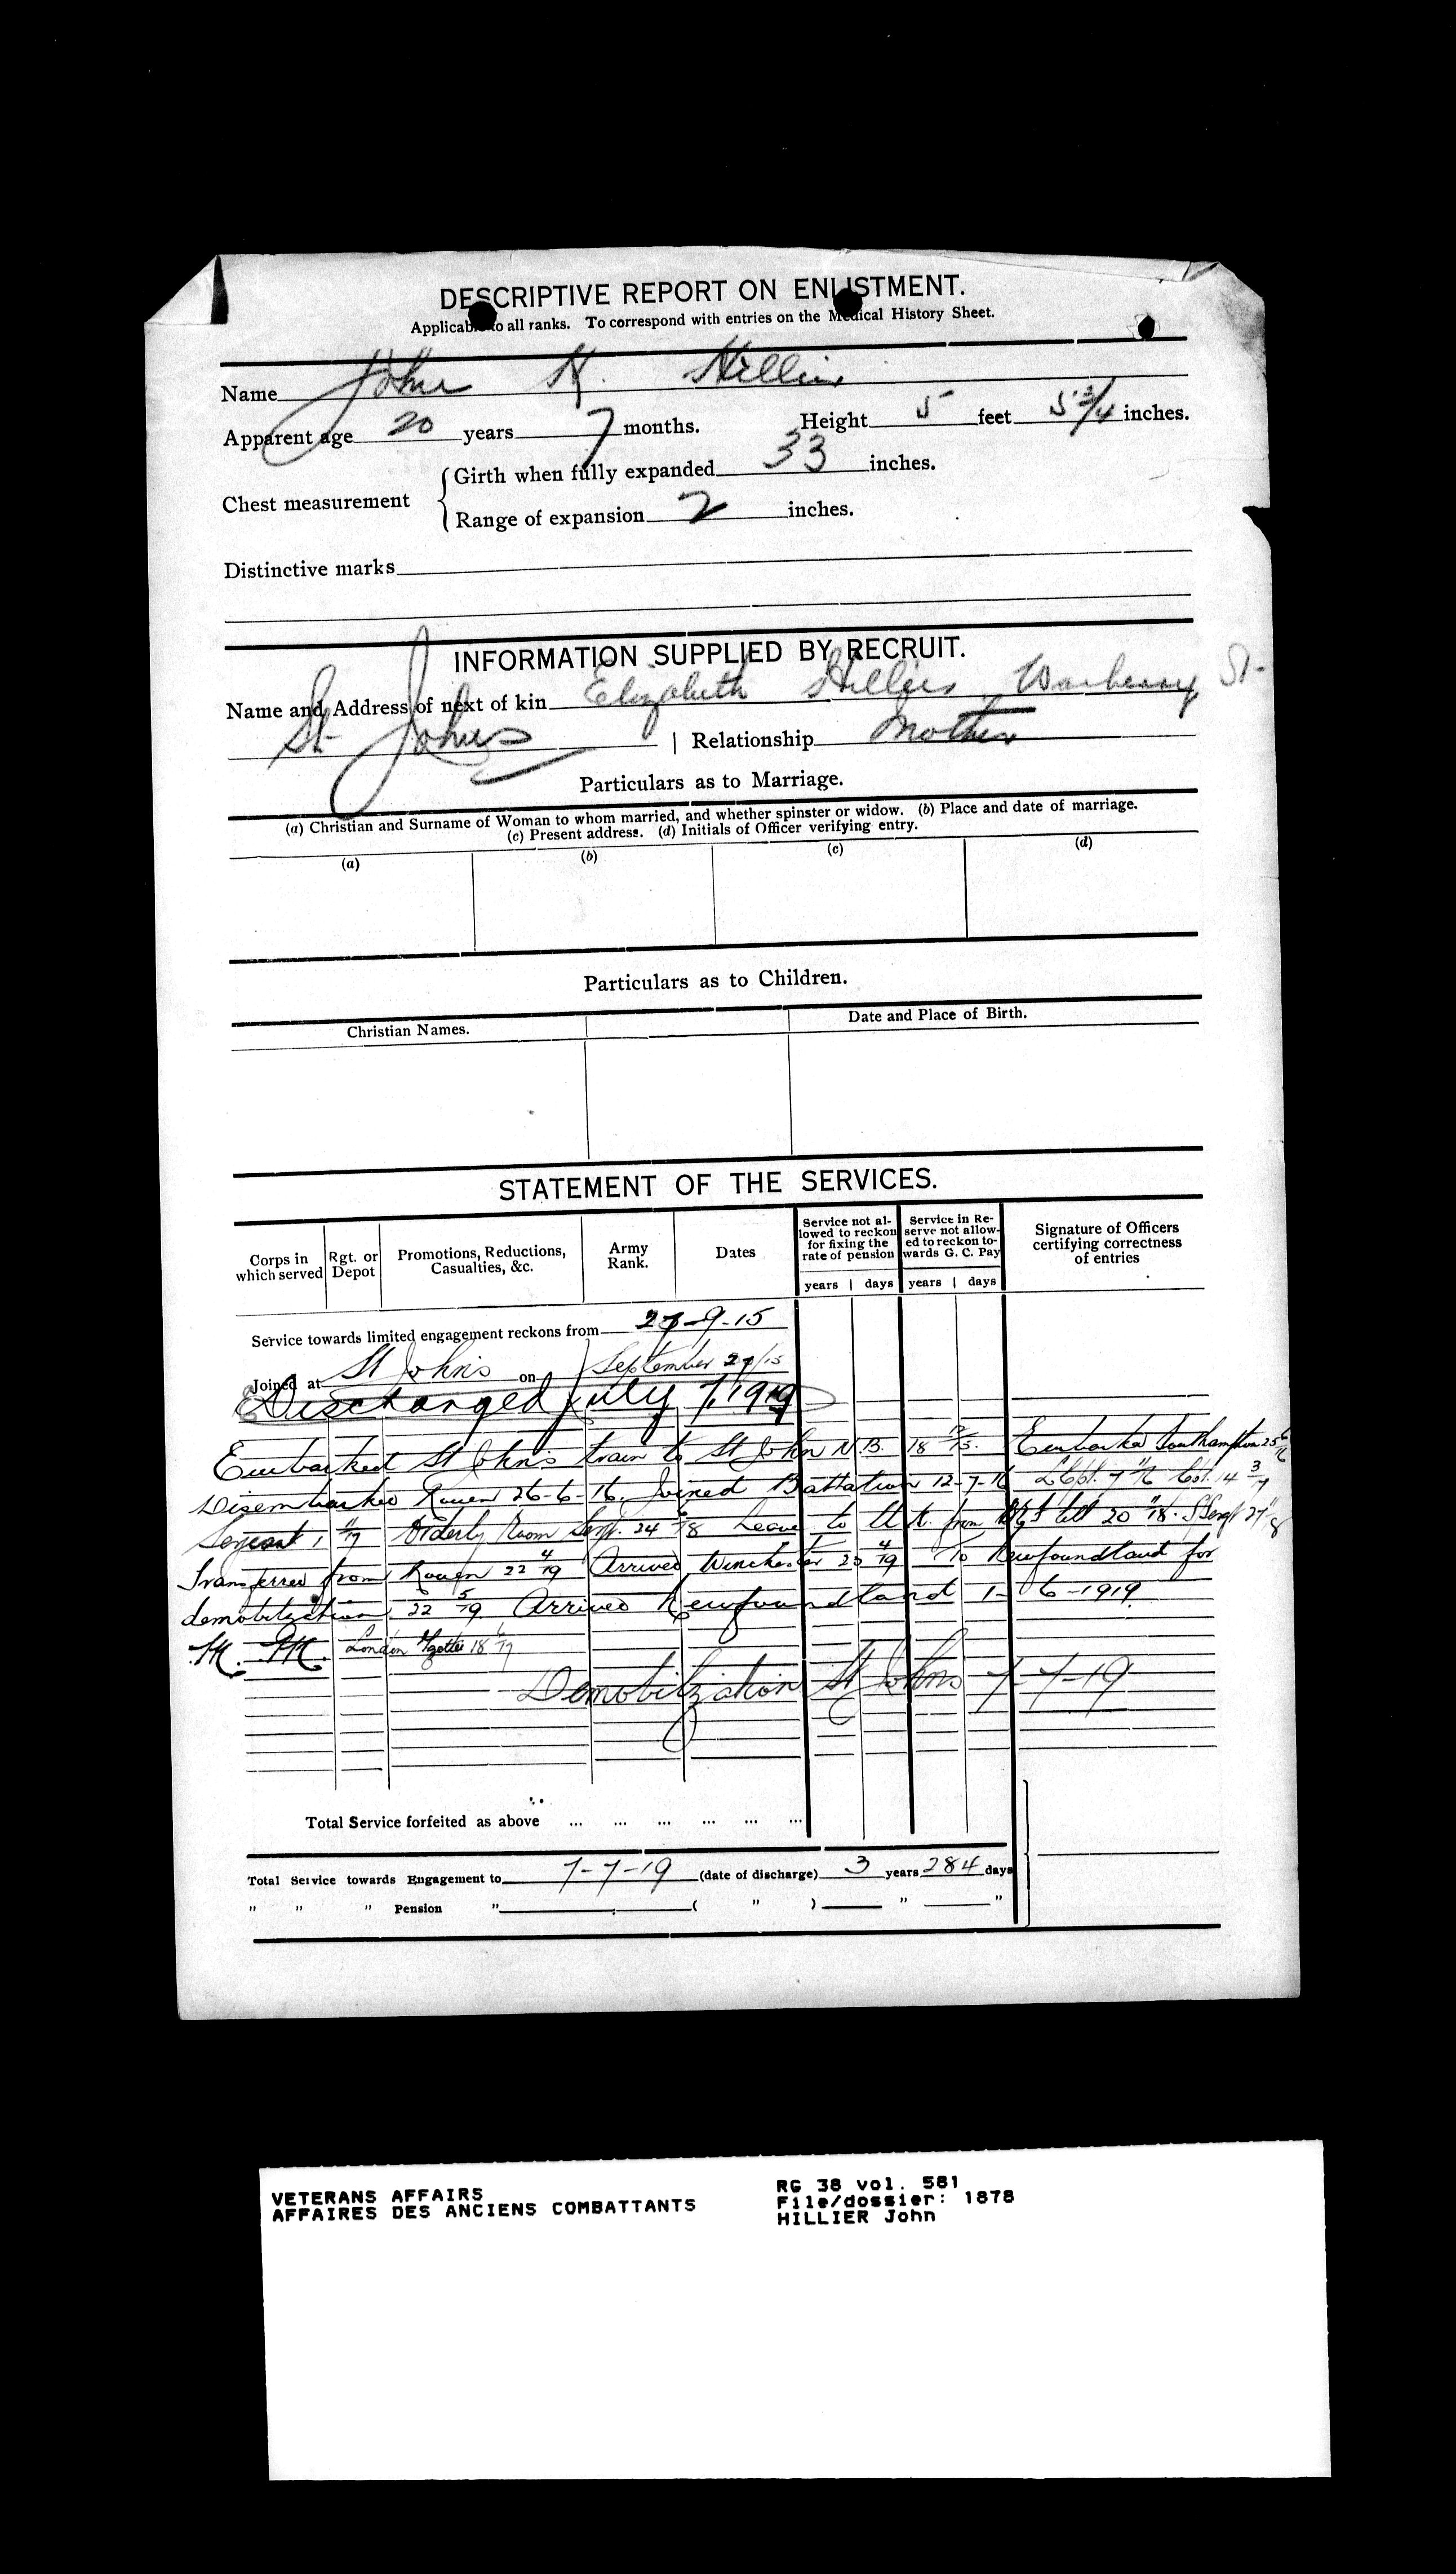 DESCRIPTIVE REPORT ON ENLISTMENT.
Applicable to all ranks. To correspond with entries on the Medical History Sheet.
Name John H. Hillier
Apparent age 20 years 7 months. Height 5 feet 5 3/4 inches.
Chest measurement
Girth when fully expanded 33 inches.
Range of expansion 2 inches.
Distinctive marks
INFORMATION SUPPLIED BY RECRUIT.
Name and Address of next of kin Elizabeth Hillier St.
St Johns | Relationship Mother
Particulars as to Marriage.
(a) Christian and Surname of Woman to whom married, and whether spinster or widow. (b) Place and date of marriage.
(c) Present address. (d) Initials of Officer verifying entry.
(a) (b) (c) (d)
Particulars as to Children.
Christian Names. Date and Place of Birth.
STATEMENT OF THE SERVICES.
Corps in which served Rgt. or Depot Promotions, Reductions, Casualties, &c. Army Rank. Dates Service not allowed to reckon for fixing the rate of pension Service in Reserve not allowed to reckon towards G. C. Pay Signature of Officers certifying correctness of entries
years | days years | days
Service towards limited engagement reckons from 27-9-15
Joined at St John's on September 27/15
Discharged July 7, 1919
Embarked St John's train to St John N.B. 18 12/15. Embarked Southampton 25 6/16
Disembarked Rouen 26-6-16. Joined Battalion 12-7-16 L Cpl. 7 11/16 Cpl. 14 3/17
Sergeant 1 11/17 Orderly Room Sergt. 24 6/18 Leave to U.K. from till 20 11/18. S Sergt 27 11/18
Transferred from Rouen 22 4/19 Arrived Winchester 23 4/19 To Newfoundland for
demobilization 22 5/19 Arrived Newfoundland 1-6-1919
M. M. London Gazette 18 6/17
Demobilization St Johns 7-7-19
Total Service forfeited as above ... ... ... ... ... ...
Total Service towards Engagement to 7-7-19 (date of discharge) 3 years 284 days
" " " Pension " ( " ) " "
VETERANS AFFAIRS
AFFAIRES DES ANCIENS COMBATTANTS
RG 38 vol. 581
File/dossier: 1878
HILLIER John